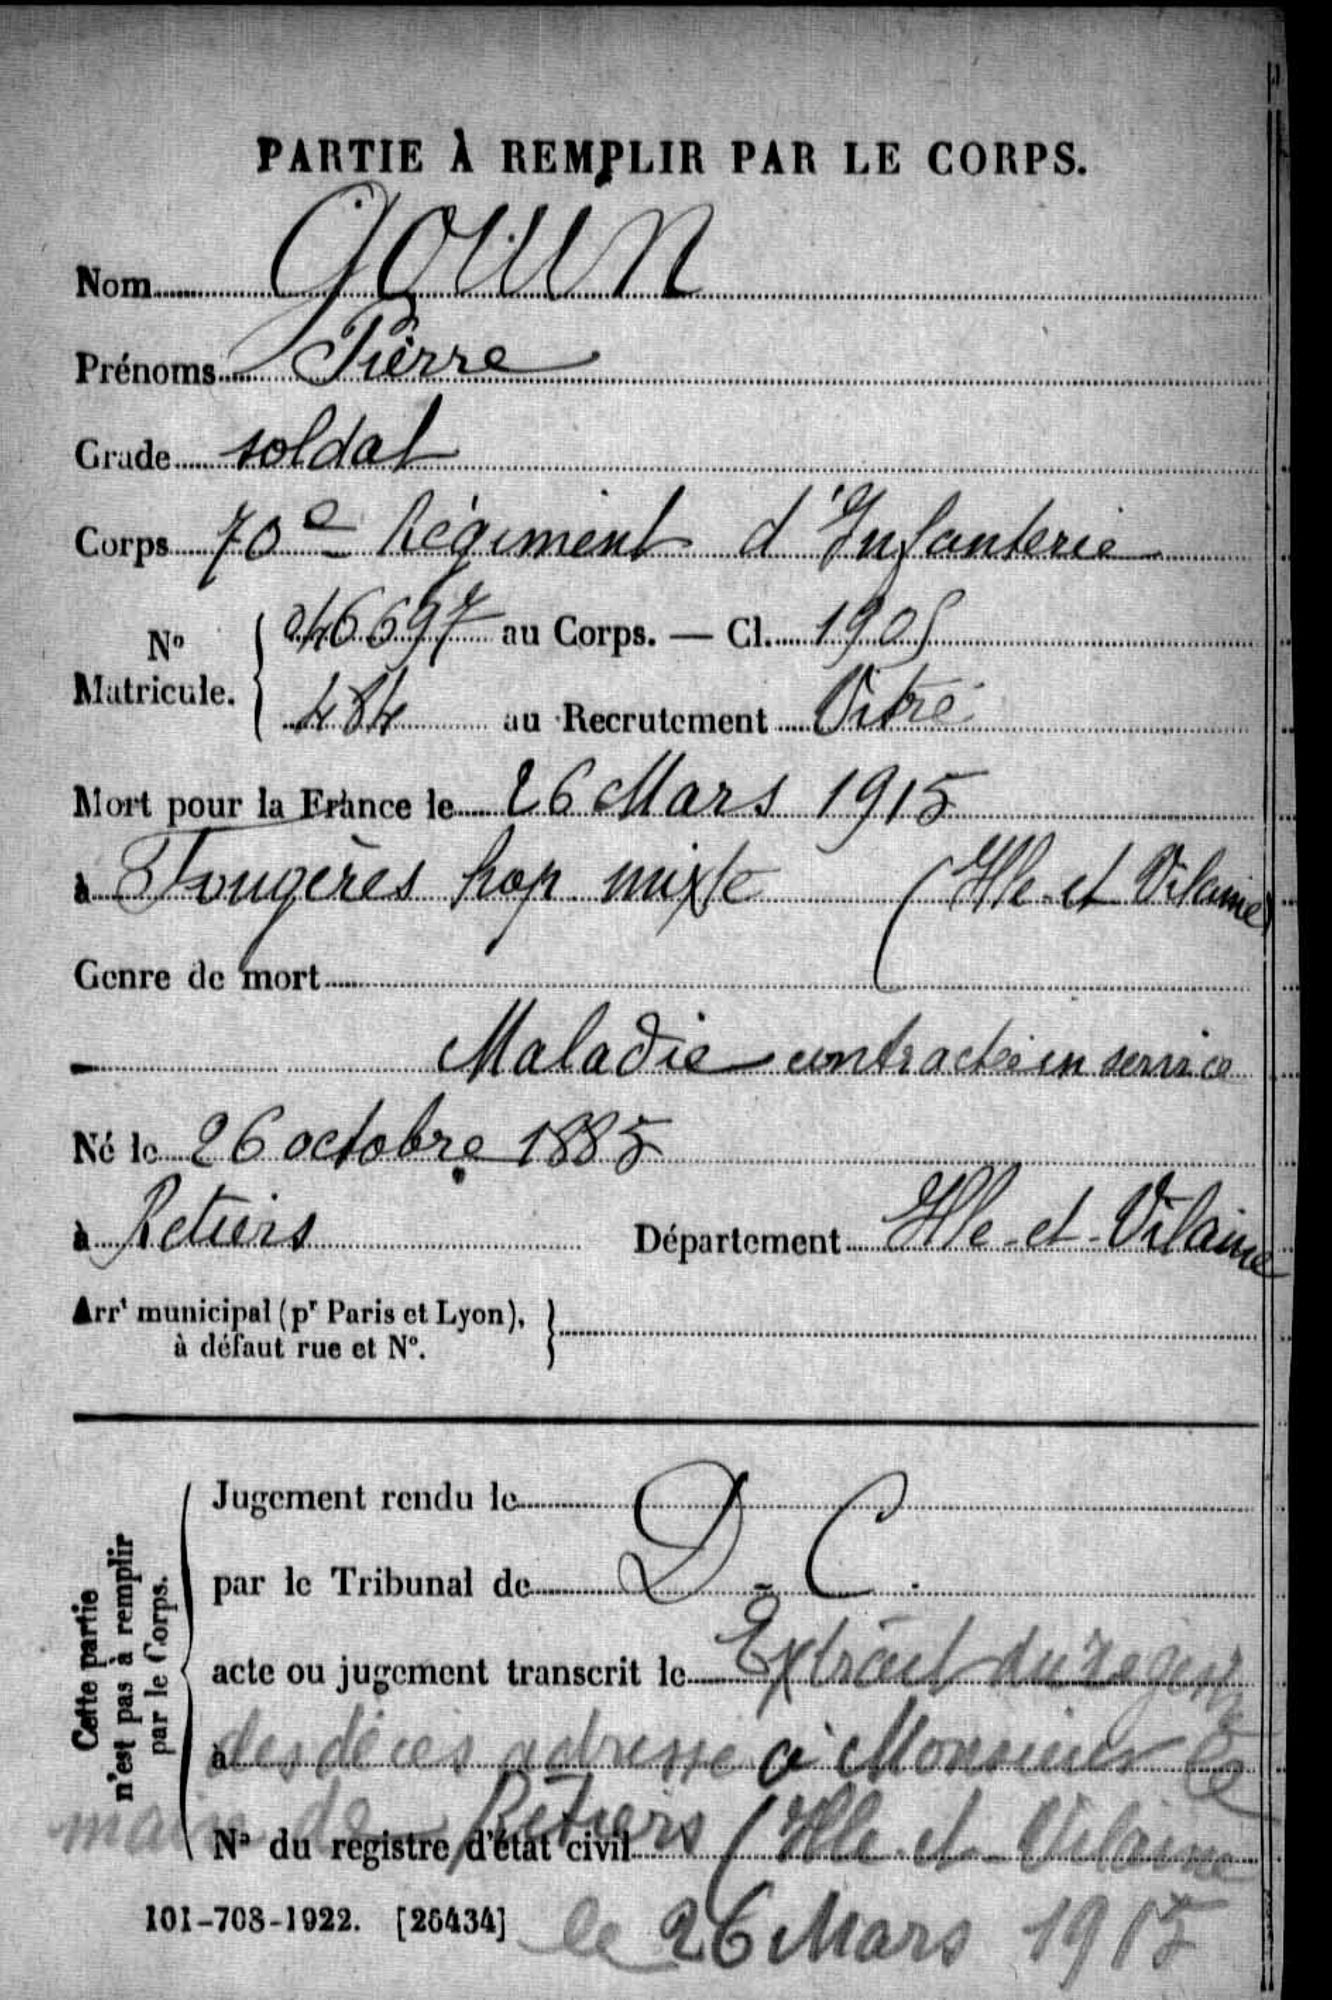 PARTIE À REMPLIR PAR LE CORPS.
Nom Gouin
Prénoms Pierre
Grade soldat
Corps 70e Régiment d'Infanterie
No Matricule. 046697 au Corps. — Cl. 1905
484 au Recrutement Vitré
Mort pour la France le 26 Mars 1915
à Fougères hop mixte (Ille-et Vilaine)
Genre de mort
Maladie contractée en service
Né le 26 octobre 1885
à Retiers Département Ille-et-Vilaine
Arrt municipal (pr Paris et Lyon),
à défaut rue et No.
Cette partie
n'est pas à remplir
par le Corps.
Jugement rendu le
par le Tribunal de D-C.
acte ou jugement transcrit le Extrait du
à des décès adressé à Monsieur le
No du registre d'état civil
maire de Retiers (Ille-et-Vilaine
101-708-1922. [26434] le 26 Mars 1915